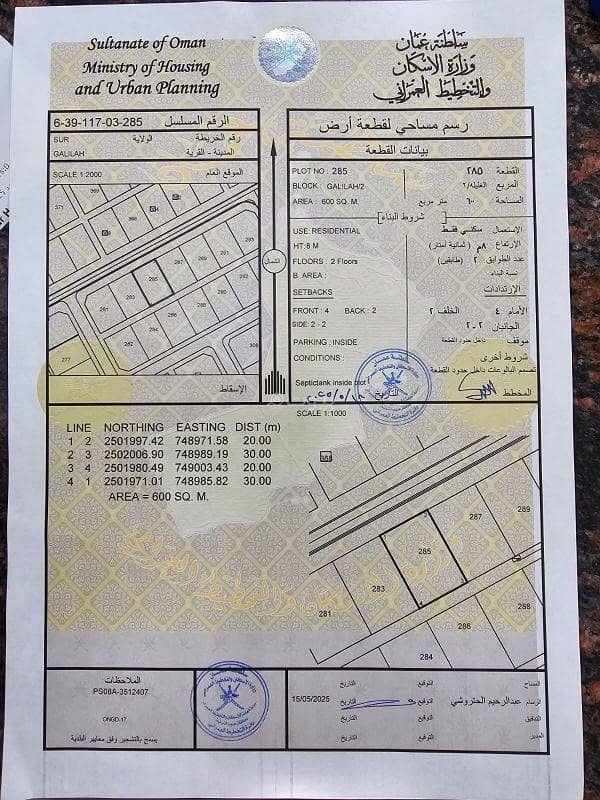 Sultanate of Oman
Ministry of Housing
and Urban Planning
سلطنة عمان
وزارة الإسكان
والتخطيط العمراني
6-39-117-03-285 الرقم المسلسل
SUR الولاية رقم الخريطة
GALILAH المدينة - القرية
SCALE 1:2000 الموقع العام
371
369
364
243
287
285
289
283
281
277
291
288
286
284
282
259
الإسقاط
الشمال
رسم مساحي لقطعة أرض
بيانات القطعة
PLOT NO : 285 القطعة ٢٨٥
BLOCK : GALILAH/2 المربع الغليله/٢
AREA : 600 SQ. M. المساحة ٦٠٠ متر مربع
شروط البناء
USE: RESIDENTIAL الإستعمال سكني فقط
HT:8 M الإرتفاع ٨م (ثمانية أمتار)
FLOORS : 2 Floors عدد الطوابق ٢ (طابقين)
B. AREA : نسبة البناء
SETBACKS الإرتدادات
FRONT : 4 BACK : 2 الأمام ٤ الخلف ٢
SIDE: 2 - 2 الجانبان ٢-٢
PARKING : INSIDE موقف داخل حدود القطعة
CONDITIONS : شروط أخرى
تصمم البالوعات داخل حدود القطعة
Septictank inside plot التاريخ المخطط
SCALE 1:1000
LINE NORTHING EASTING DIST (m)
1 2 2501997.42 748971.58 20.00
2 3 2502006.90 748989.19 30.00
3 4 2501980.49 749003.43 20.00
4 1 2501971.01 748985.82 30.00
AREA = 600 SQ. M.
368
289
287
285
283
281
288
286
284
الملاحظات
PS08A-3512407
ONGD-17
يسمح بالتشجير وفق معايير البلدية
المساح التوقيع التاريخ
الرسام عبدالرحيم الحتروشي التوقيع التاريخ 15/05/2025
التدقيق التوقيع التاريخ
المدير التوقيع التاريخ